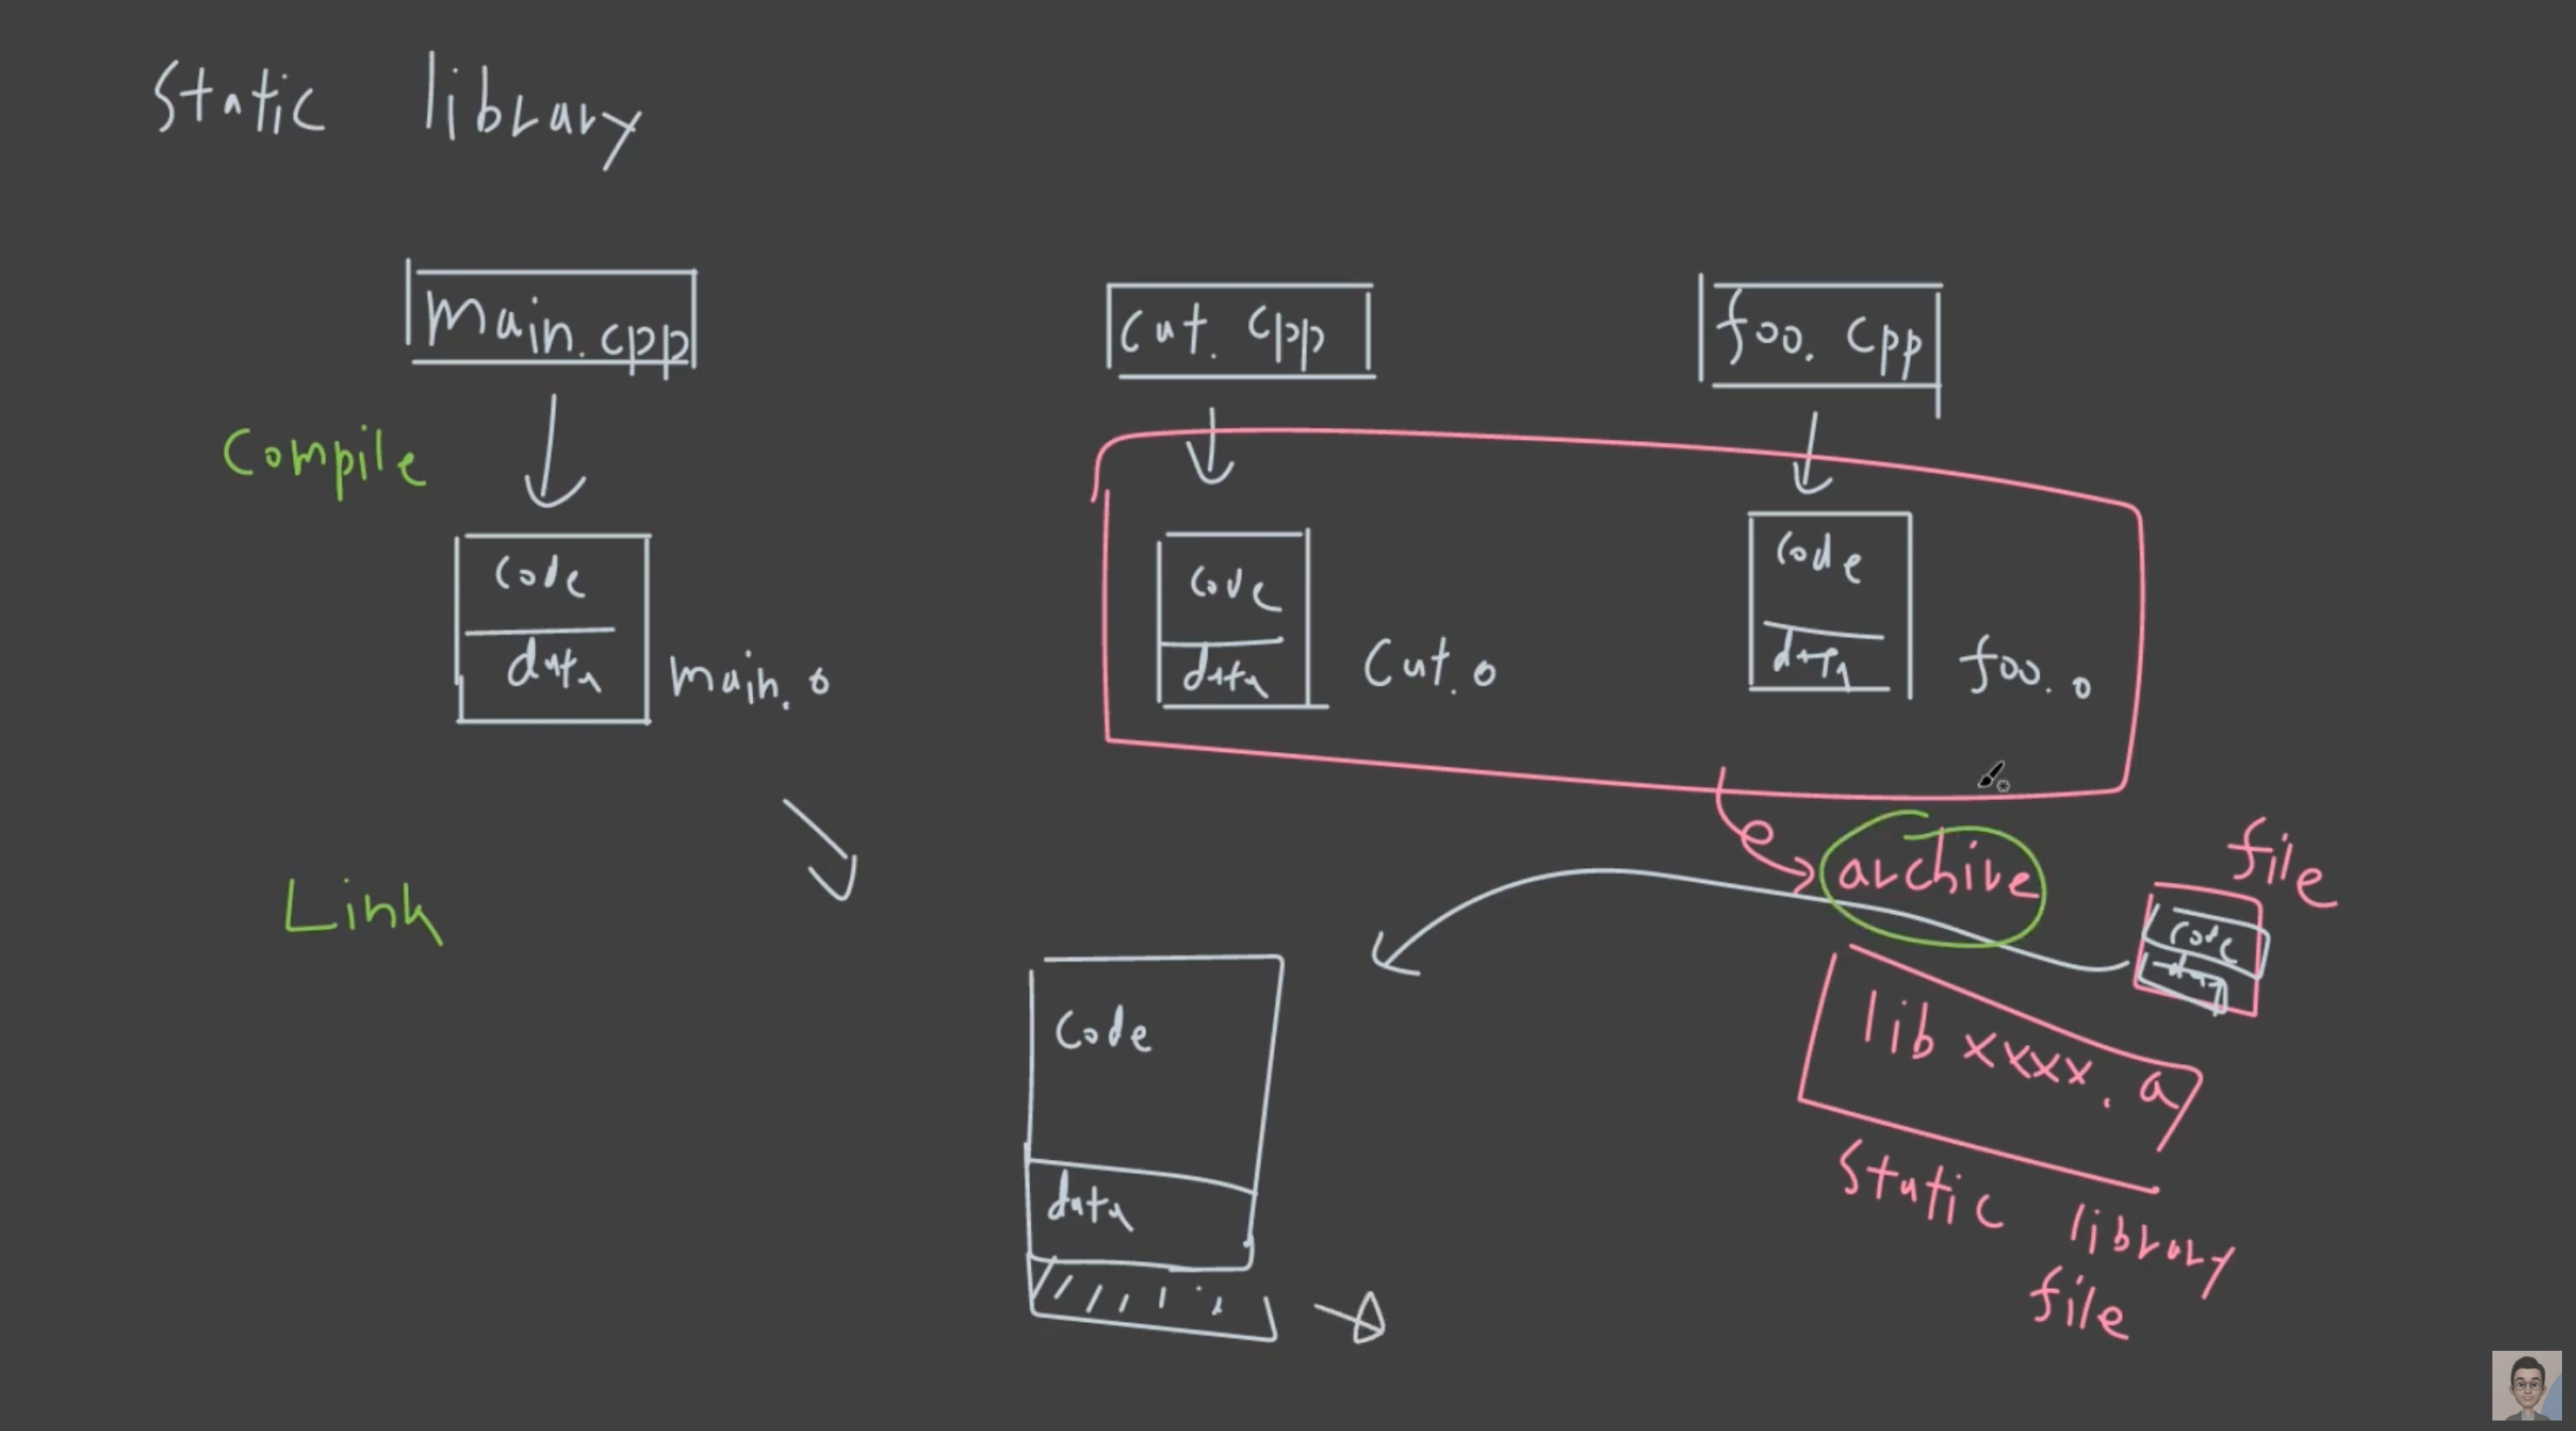 Static library
main.cpp
cut.cpp
foo.cpp
Compile
code
data
main.o
code
data
cut.o
code
data
foo.o
Link
archive
file
code
data
lib xxxx.a
static library
file
code
data